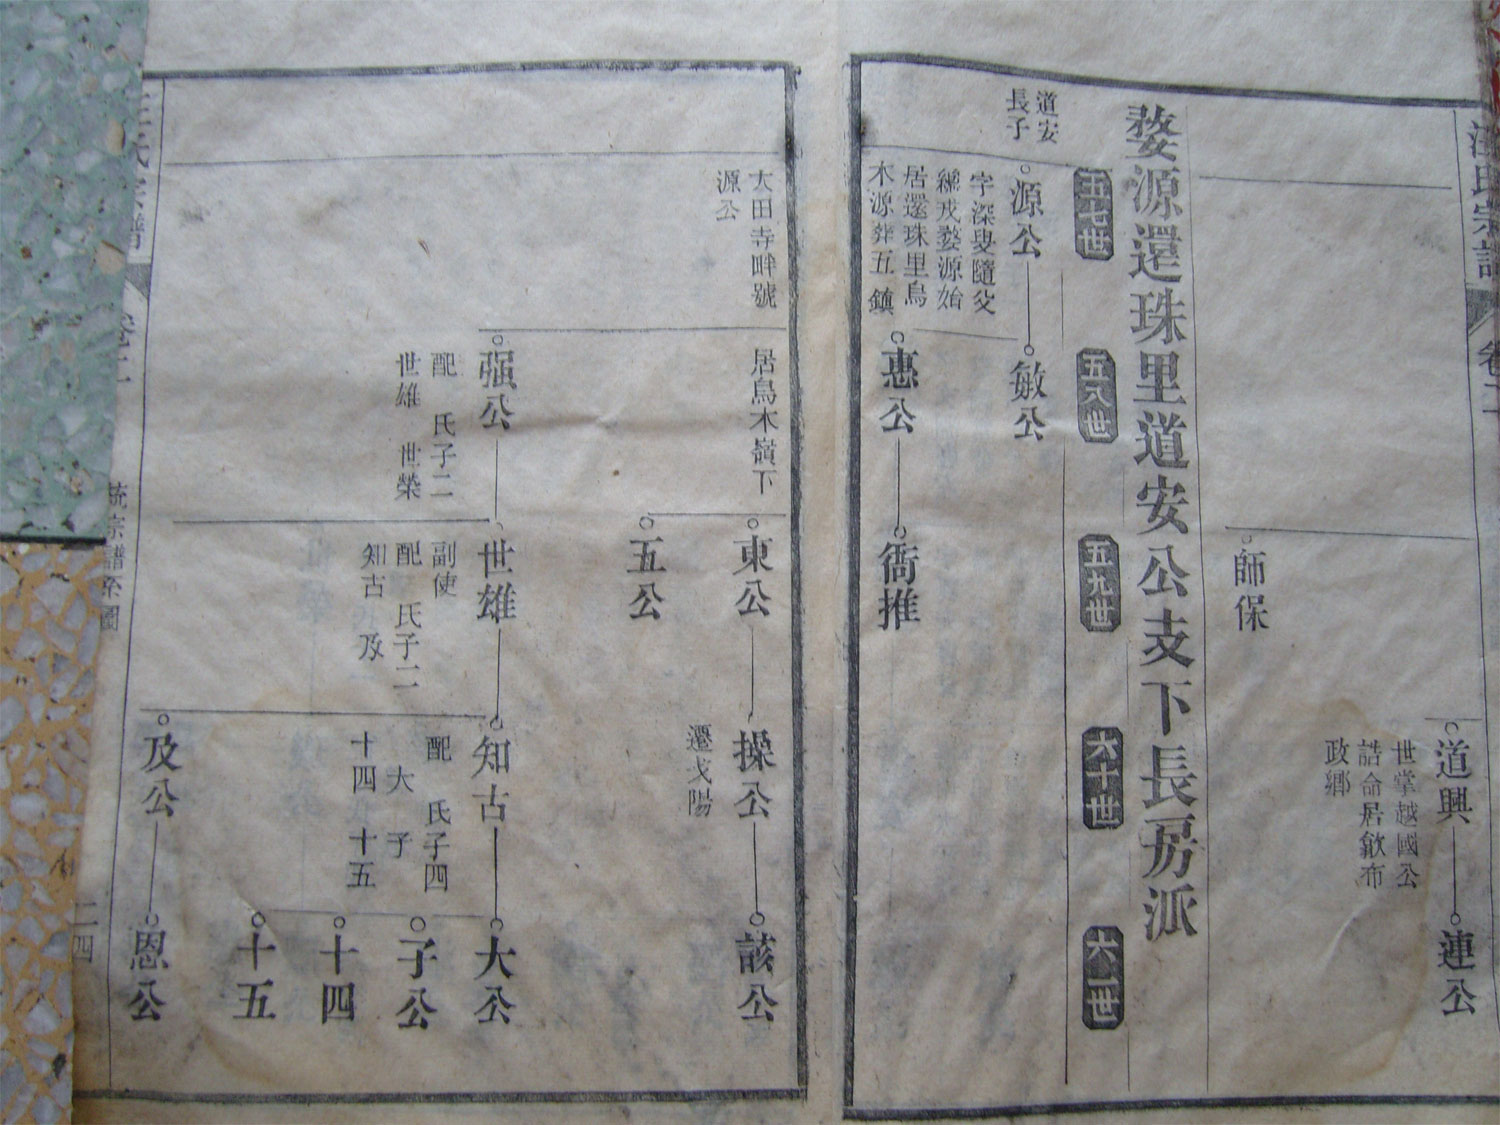 汪氏宗譜
卷二
道興
世掌越國公
誥命居歙布
政鄉
連公
師保
婺源還珠里道安公支下長房派
五七世
五八世
五九世
六十世
六一世
道安
長子
源公
字深叟隨父
戍婺源始
居還珠里烏
木源葬五鎮
敏公
惠公
衙推
太田寺畔號
源公
居烏木嶺下
東公
操公
遷弋陽
該公
五公
强公
配　氏子二
世雄　世榮
世雄
副使
配　氏子二
知古　及
知古
配　氏子四
大　子
十四　十五
大公
子公
十四
十五
及公
恩公
宗譜
統宗譜系圖
二四